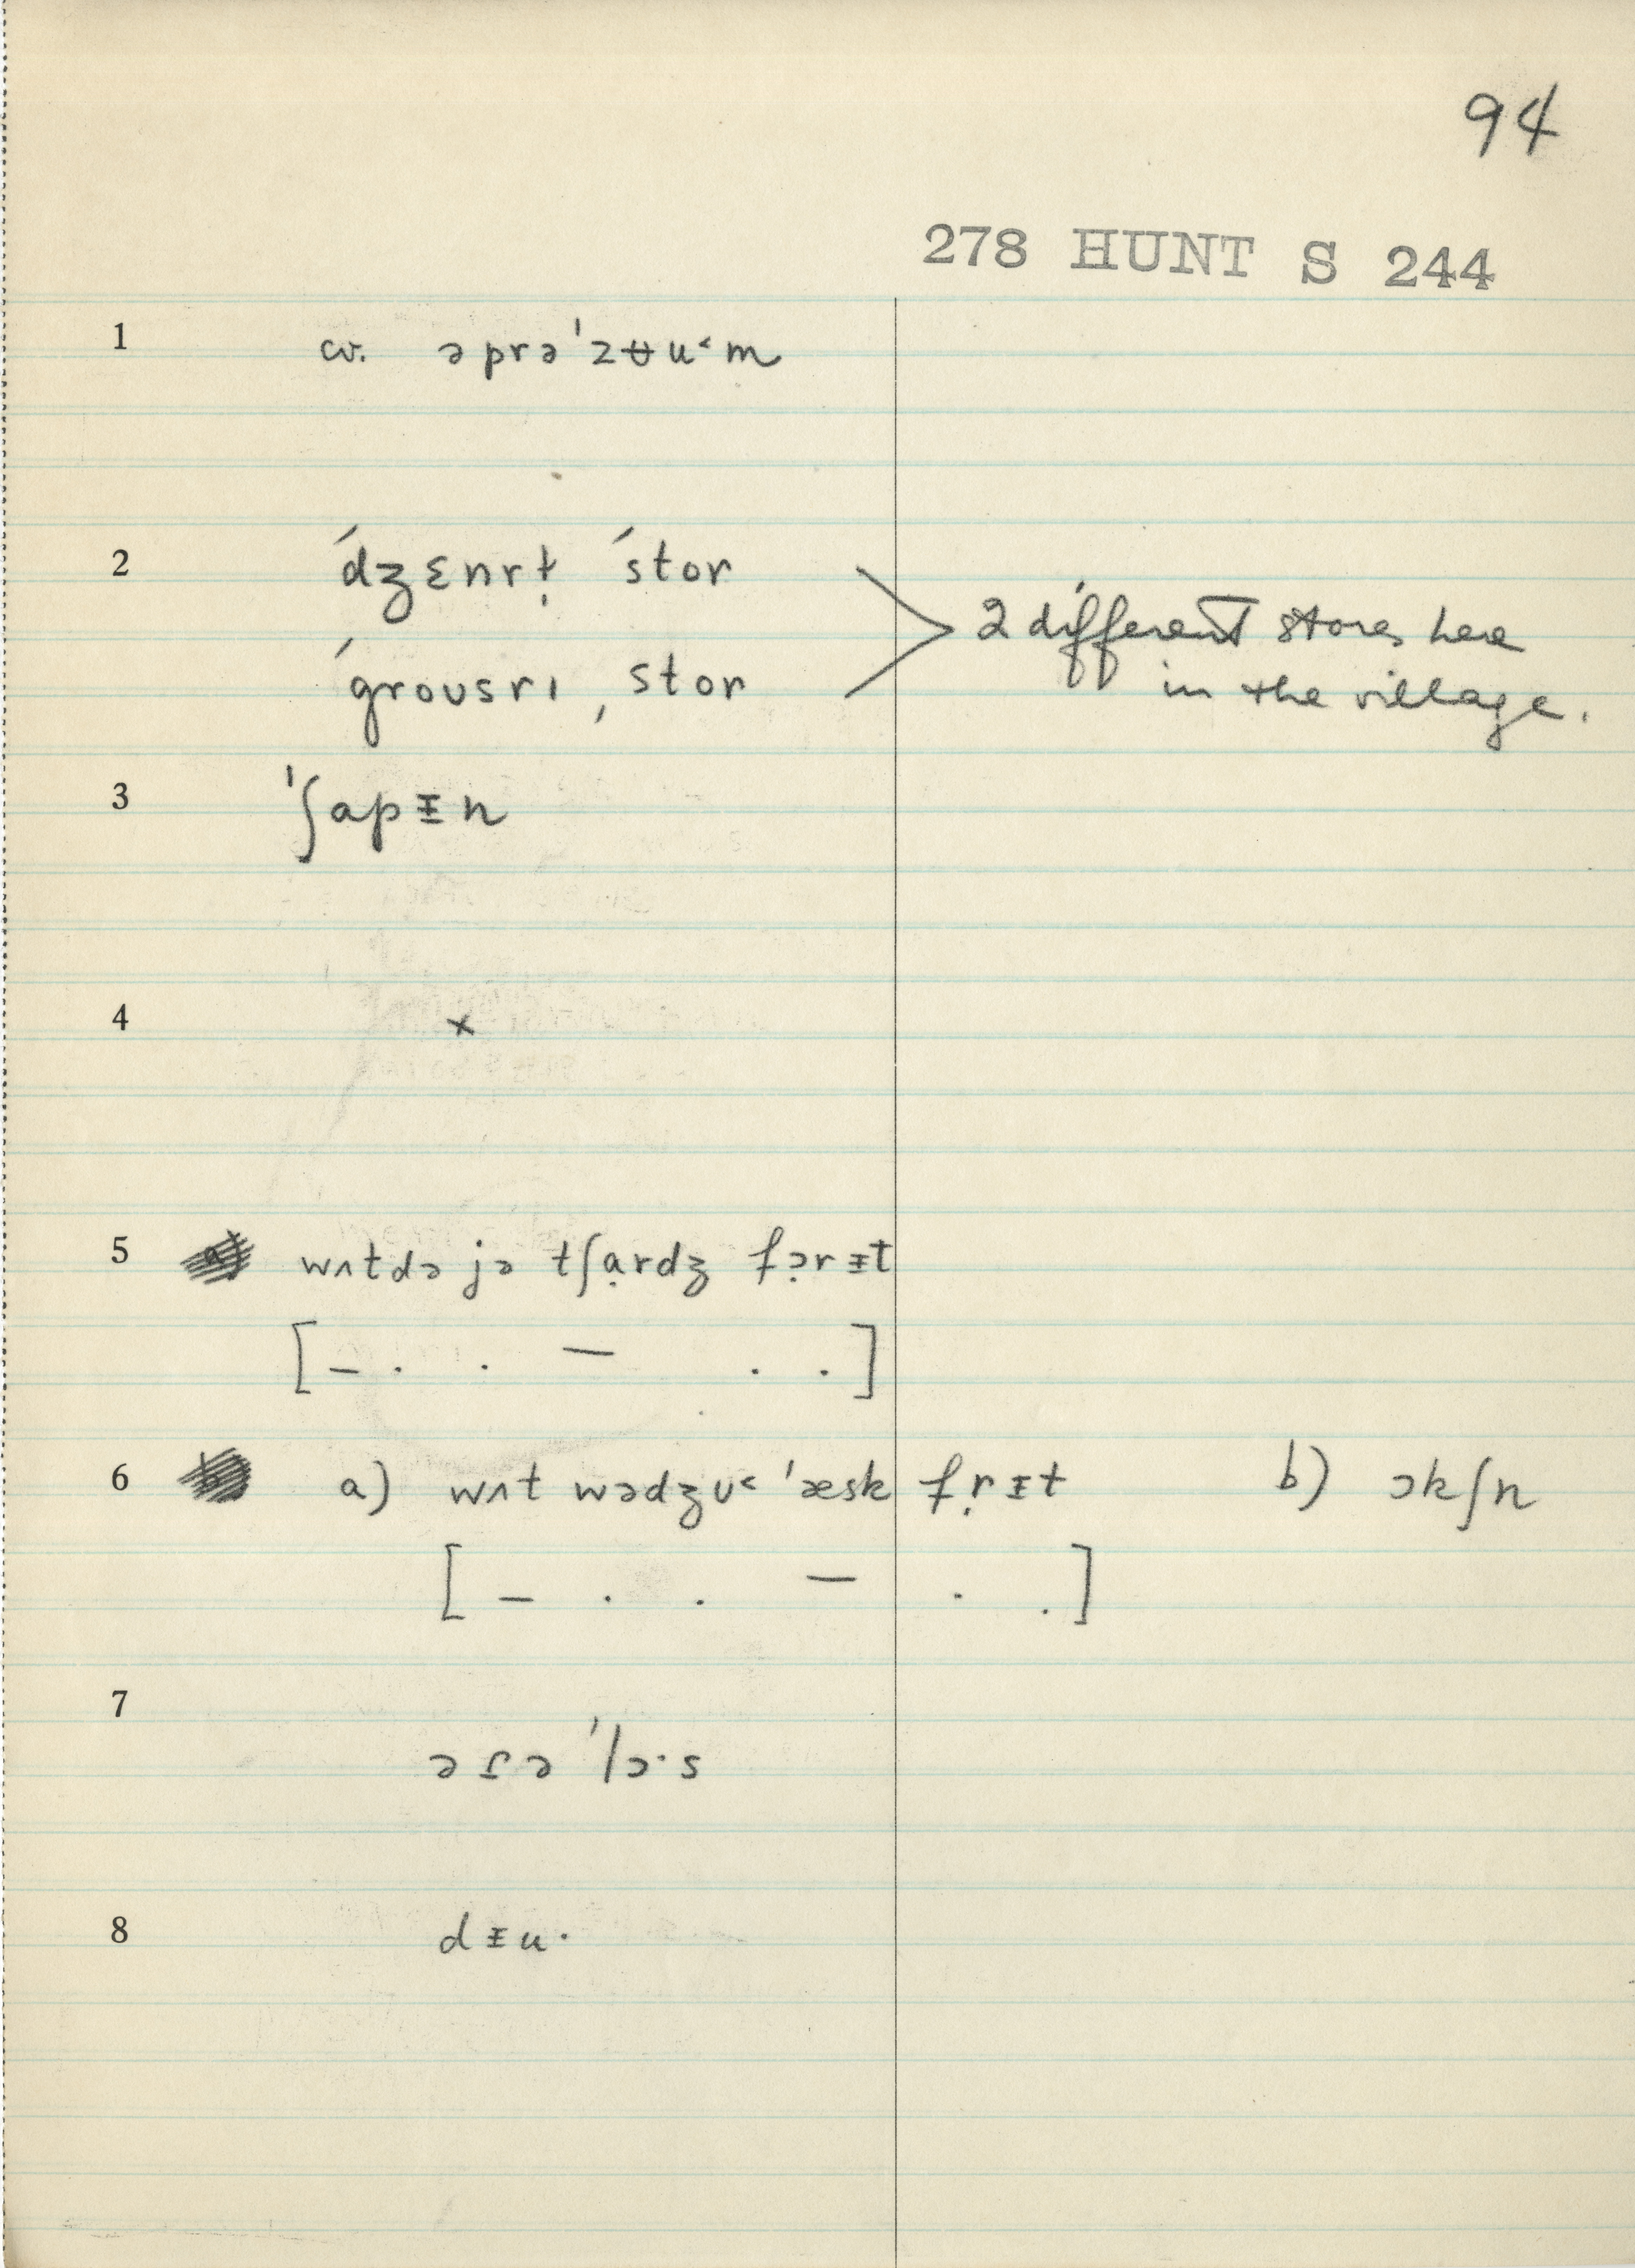 94
278 HUNT S 244
1 cv. əprəˈzʉu˂m
2 ˊdʒɛnrɫ̩ ˊstor
ˊgroʊsrɪ ˌstor
> 2 different stores here
in the village.
3 ˈʃapᵻn
4 ×
5 wʌtdə jə tʃɑ̣rdʒ fə̣rᵻt
[– . . – . .]
6 a) wʌt wədʒʊ˂ ˈæsk fṛᵻt b) ɔkʃn
[– . . – . .]
7
ərə ˈlɔ·s
8 dᵻu·